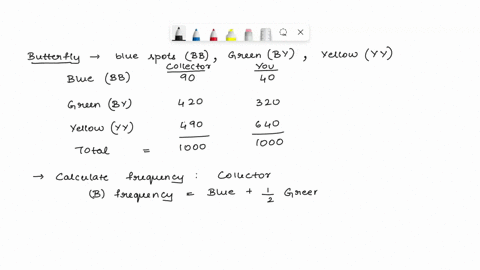 Butterfly → blue spots (BB), Green (BY), Yellow (YY)
Collector You
Blue (BB) 90 40
Green (BY) 420 320
Yellow (YY) 490 640
Total = 1000 1000
→ Calculate frequency : Collector
(B) frequency = Blue + 1/2 Greer